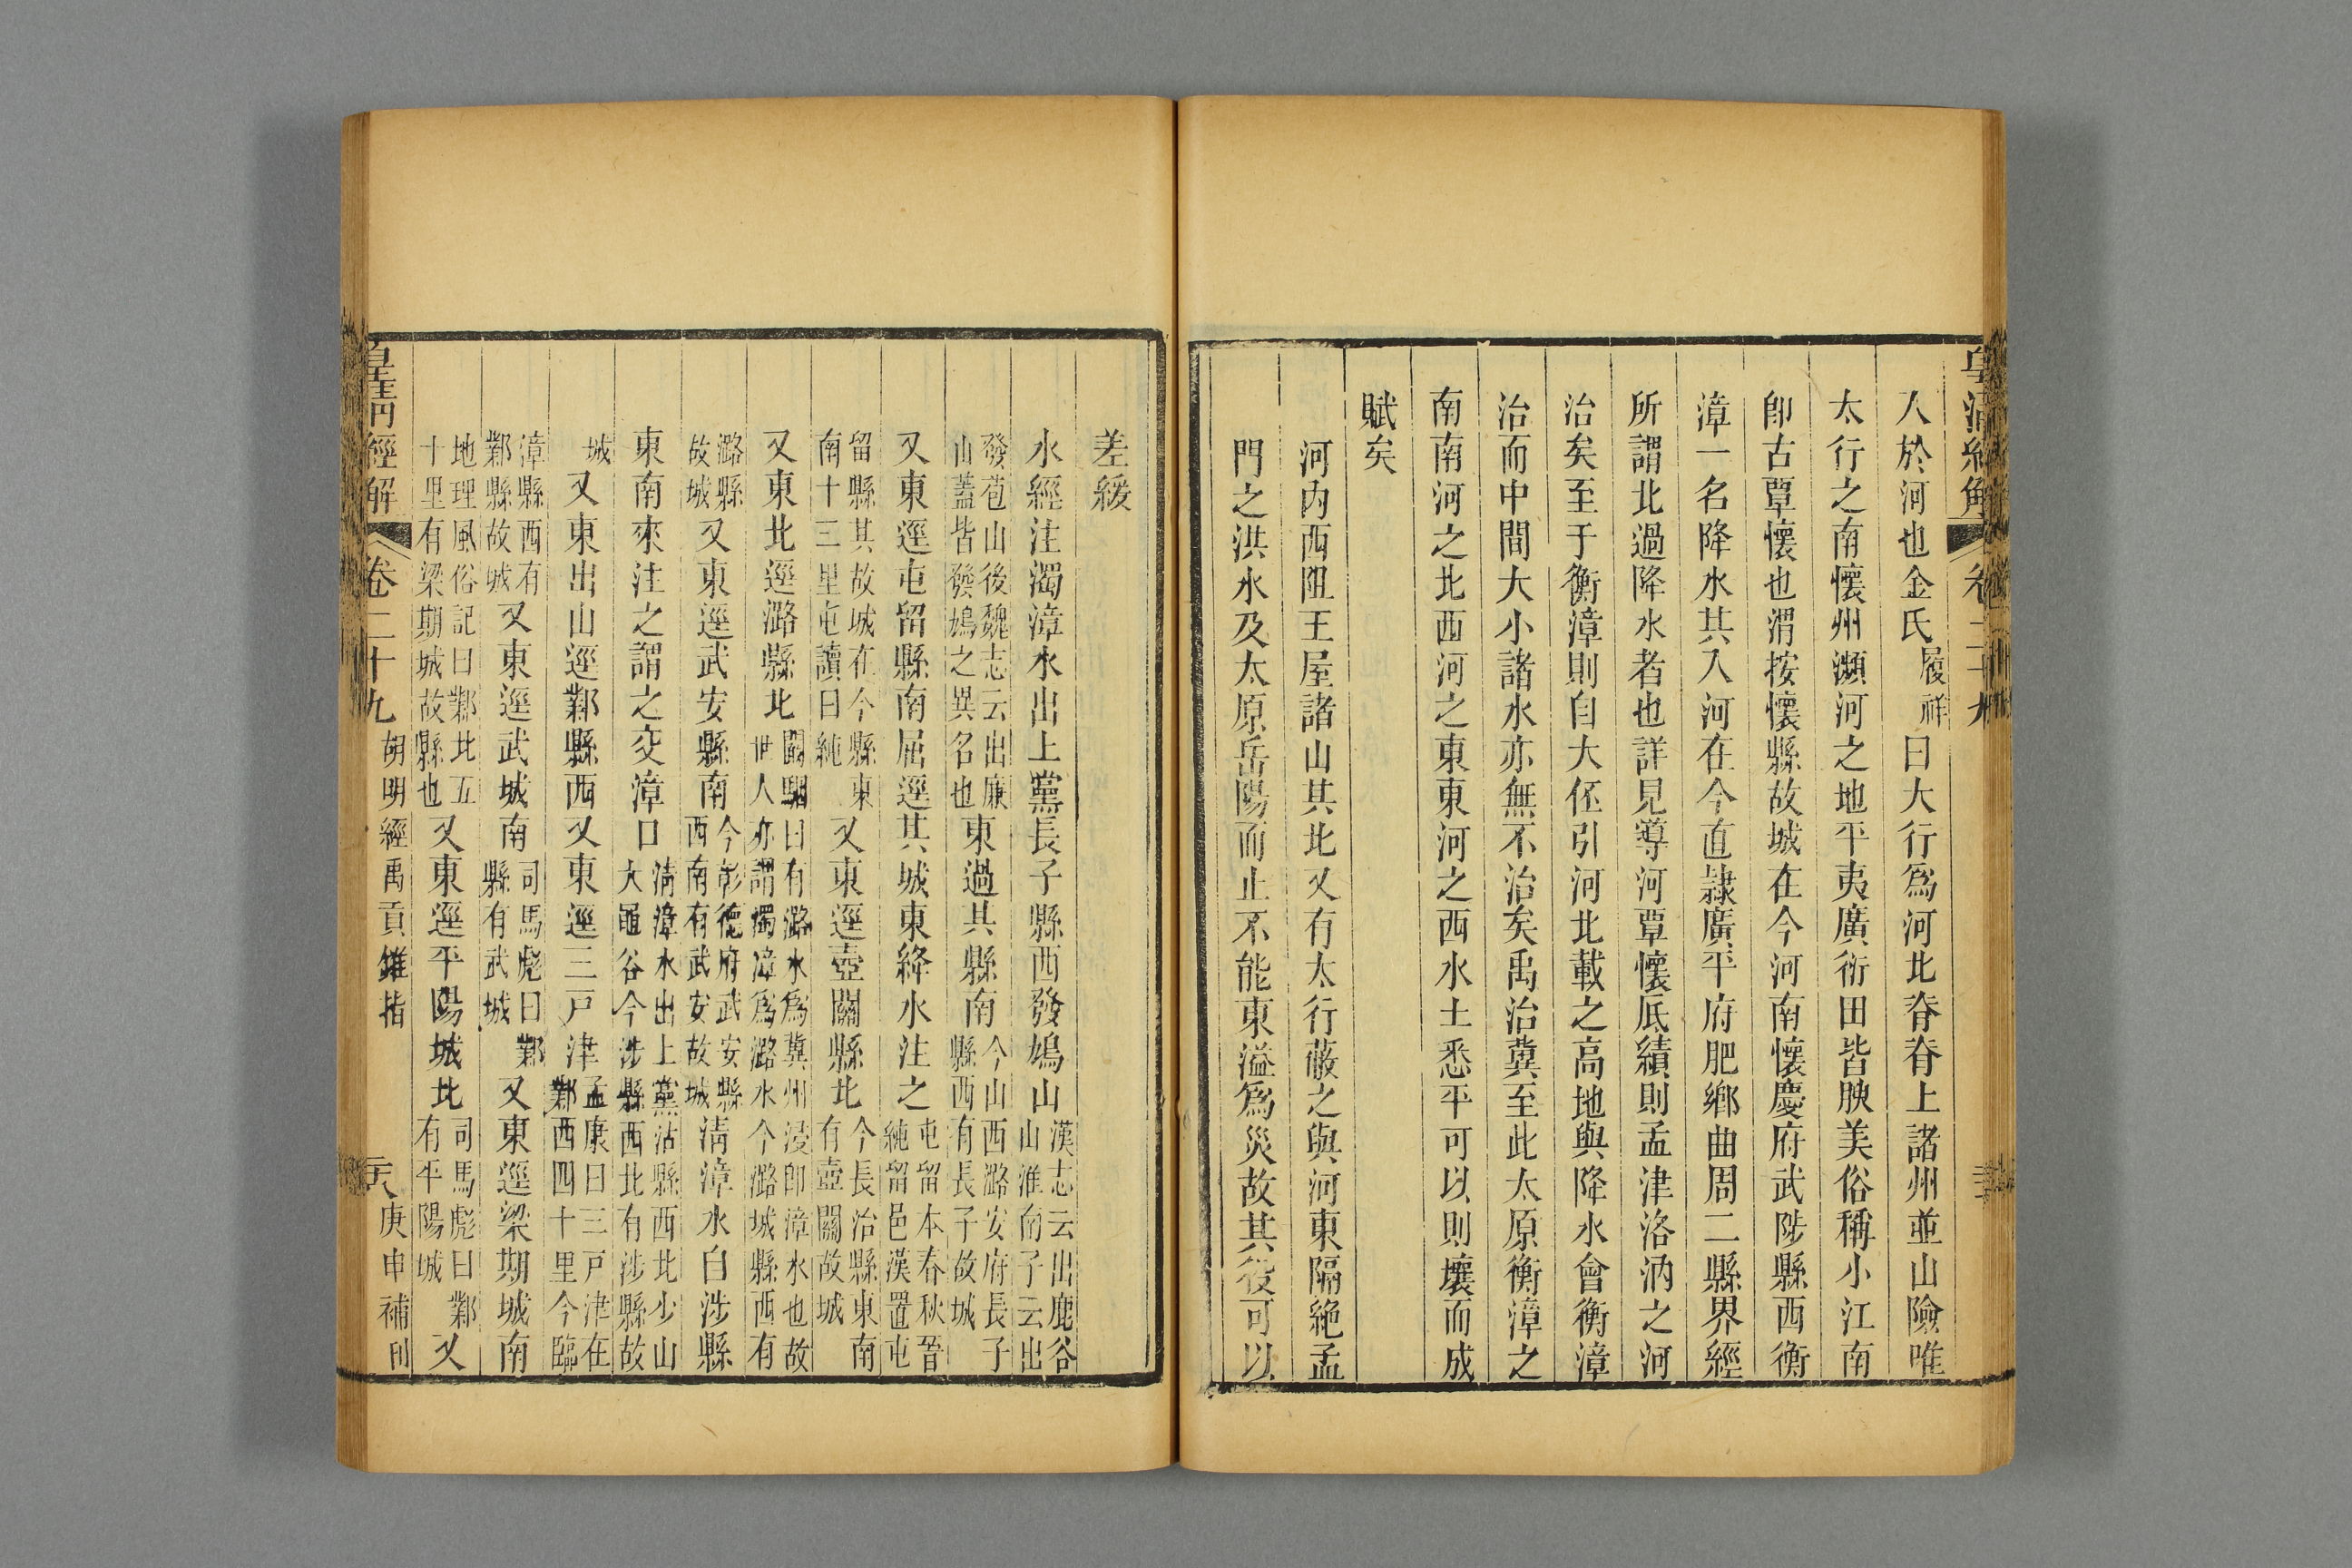 皇清經解 卷二十九
入於河也金氏履祥曰大行爲河北脊脊上諸州並山險唯
太行之南懷州瀕河之地平夷廣衍田皆腴美俗稱小江南
卽古覃懷也渭按懷縣故城在今河南懷慶府武陟縣西衡
漳一名降水其入河在今直隸廣平府肥鄉曲周二縣界經
所謂北過降水者也詳見導河覃懷厎績則孟津洛汭之河
治矣至于衡漳則自大伾引河北載之高地與降水會衡漳
治而中間大小諸水亦無不治矣禹治冀至此太原衡漳之
南南河之北西河之東東河之西水土悉平可以則壤而成
賦矣
河內西阻王屋諸山其北又有太行蔽之與河東隔絶孟
門之洪水及太原岳陽而止不能東溢爲災故其役可以
差緩
水經注濁漳水出上黨長子縣西發鳩山漢志云出鹿谷山淮南子云出
發苞山後魏志云出廉山蓋皆發鳩之異名也東過其縣南今山西潞安府長子縣西有長子故城
又東逕屯留縣南屈逕其城東絳水注之屯留本春秋晉純留邑漢置屯
留縣其故城在今縣東南十三里屯讀曰純又東逕壺關縣北今長治縣東南有壺關故城
又東北逕潞縣北闞駰曰有潞水爲冀州浸卽漳水也故世人亦謂濁漳爲潞水今潞城縣西有
潞縣故城又東逕武安縣南今彰德府武安縣西南有武安故城淸漳水自涉縣
東南來注之謂之交漳口淸漳水出上黨沾縣西北少山大黽谷今涉縣西北有涉縣故
城又東出山逕鄴縣西又東逕三戸津孟康曰三戸津在鄴西四十里今臨
漳縣西有鄴縣故城又東逕武城南司馬彪曰鄴縣有武城又東逕梁期城南
地理風俗記曰鄴北五十里有梁期城故縣也又東逕平陽城北司馬彪曰鄴有平陽城又
皇淸經解 卷二十九 胡明經禹貢錐指 庚申補刊